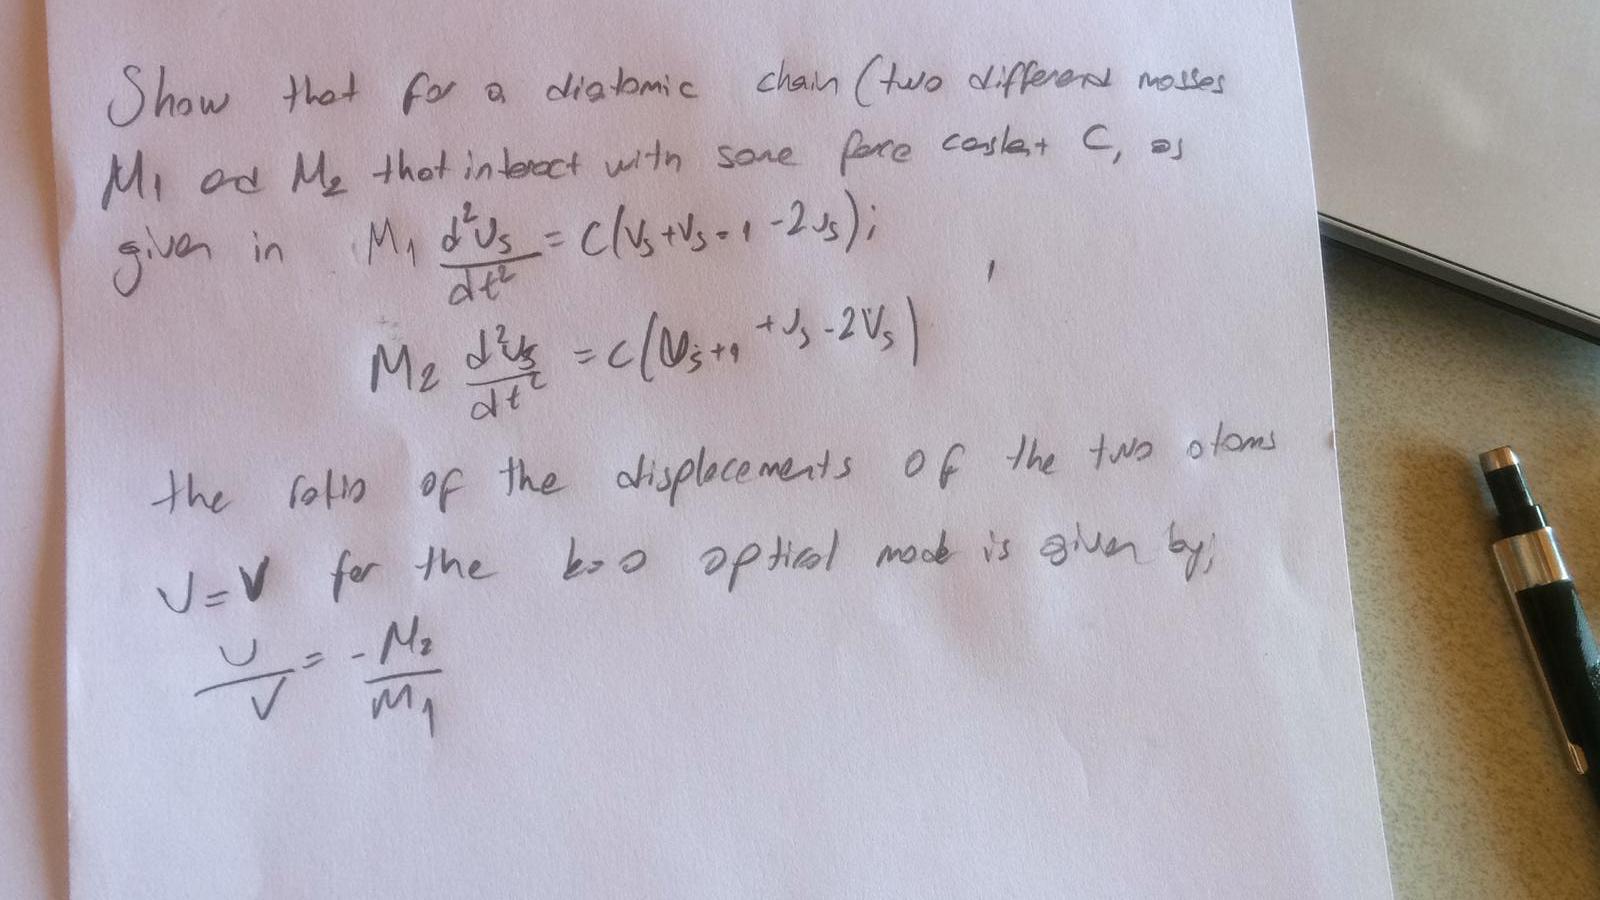 Show that for a diatomic chain (two different masses
M₁ and M₂ that interact with same force constant C, as
given in M₁ d²Us/dt² = C(Vs + Vs-1 - 2Us);
M₂ d²Vs/dt² = C(Us+1 + Us - 2Vs)
the ratio of the displacements of the two atoms
U=V for the k=0 optical mode is given by;
U/V = - M₂/M₁